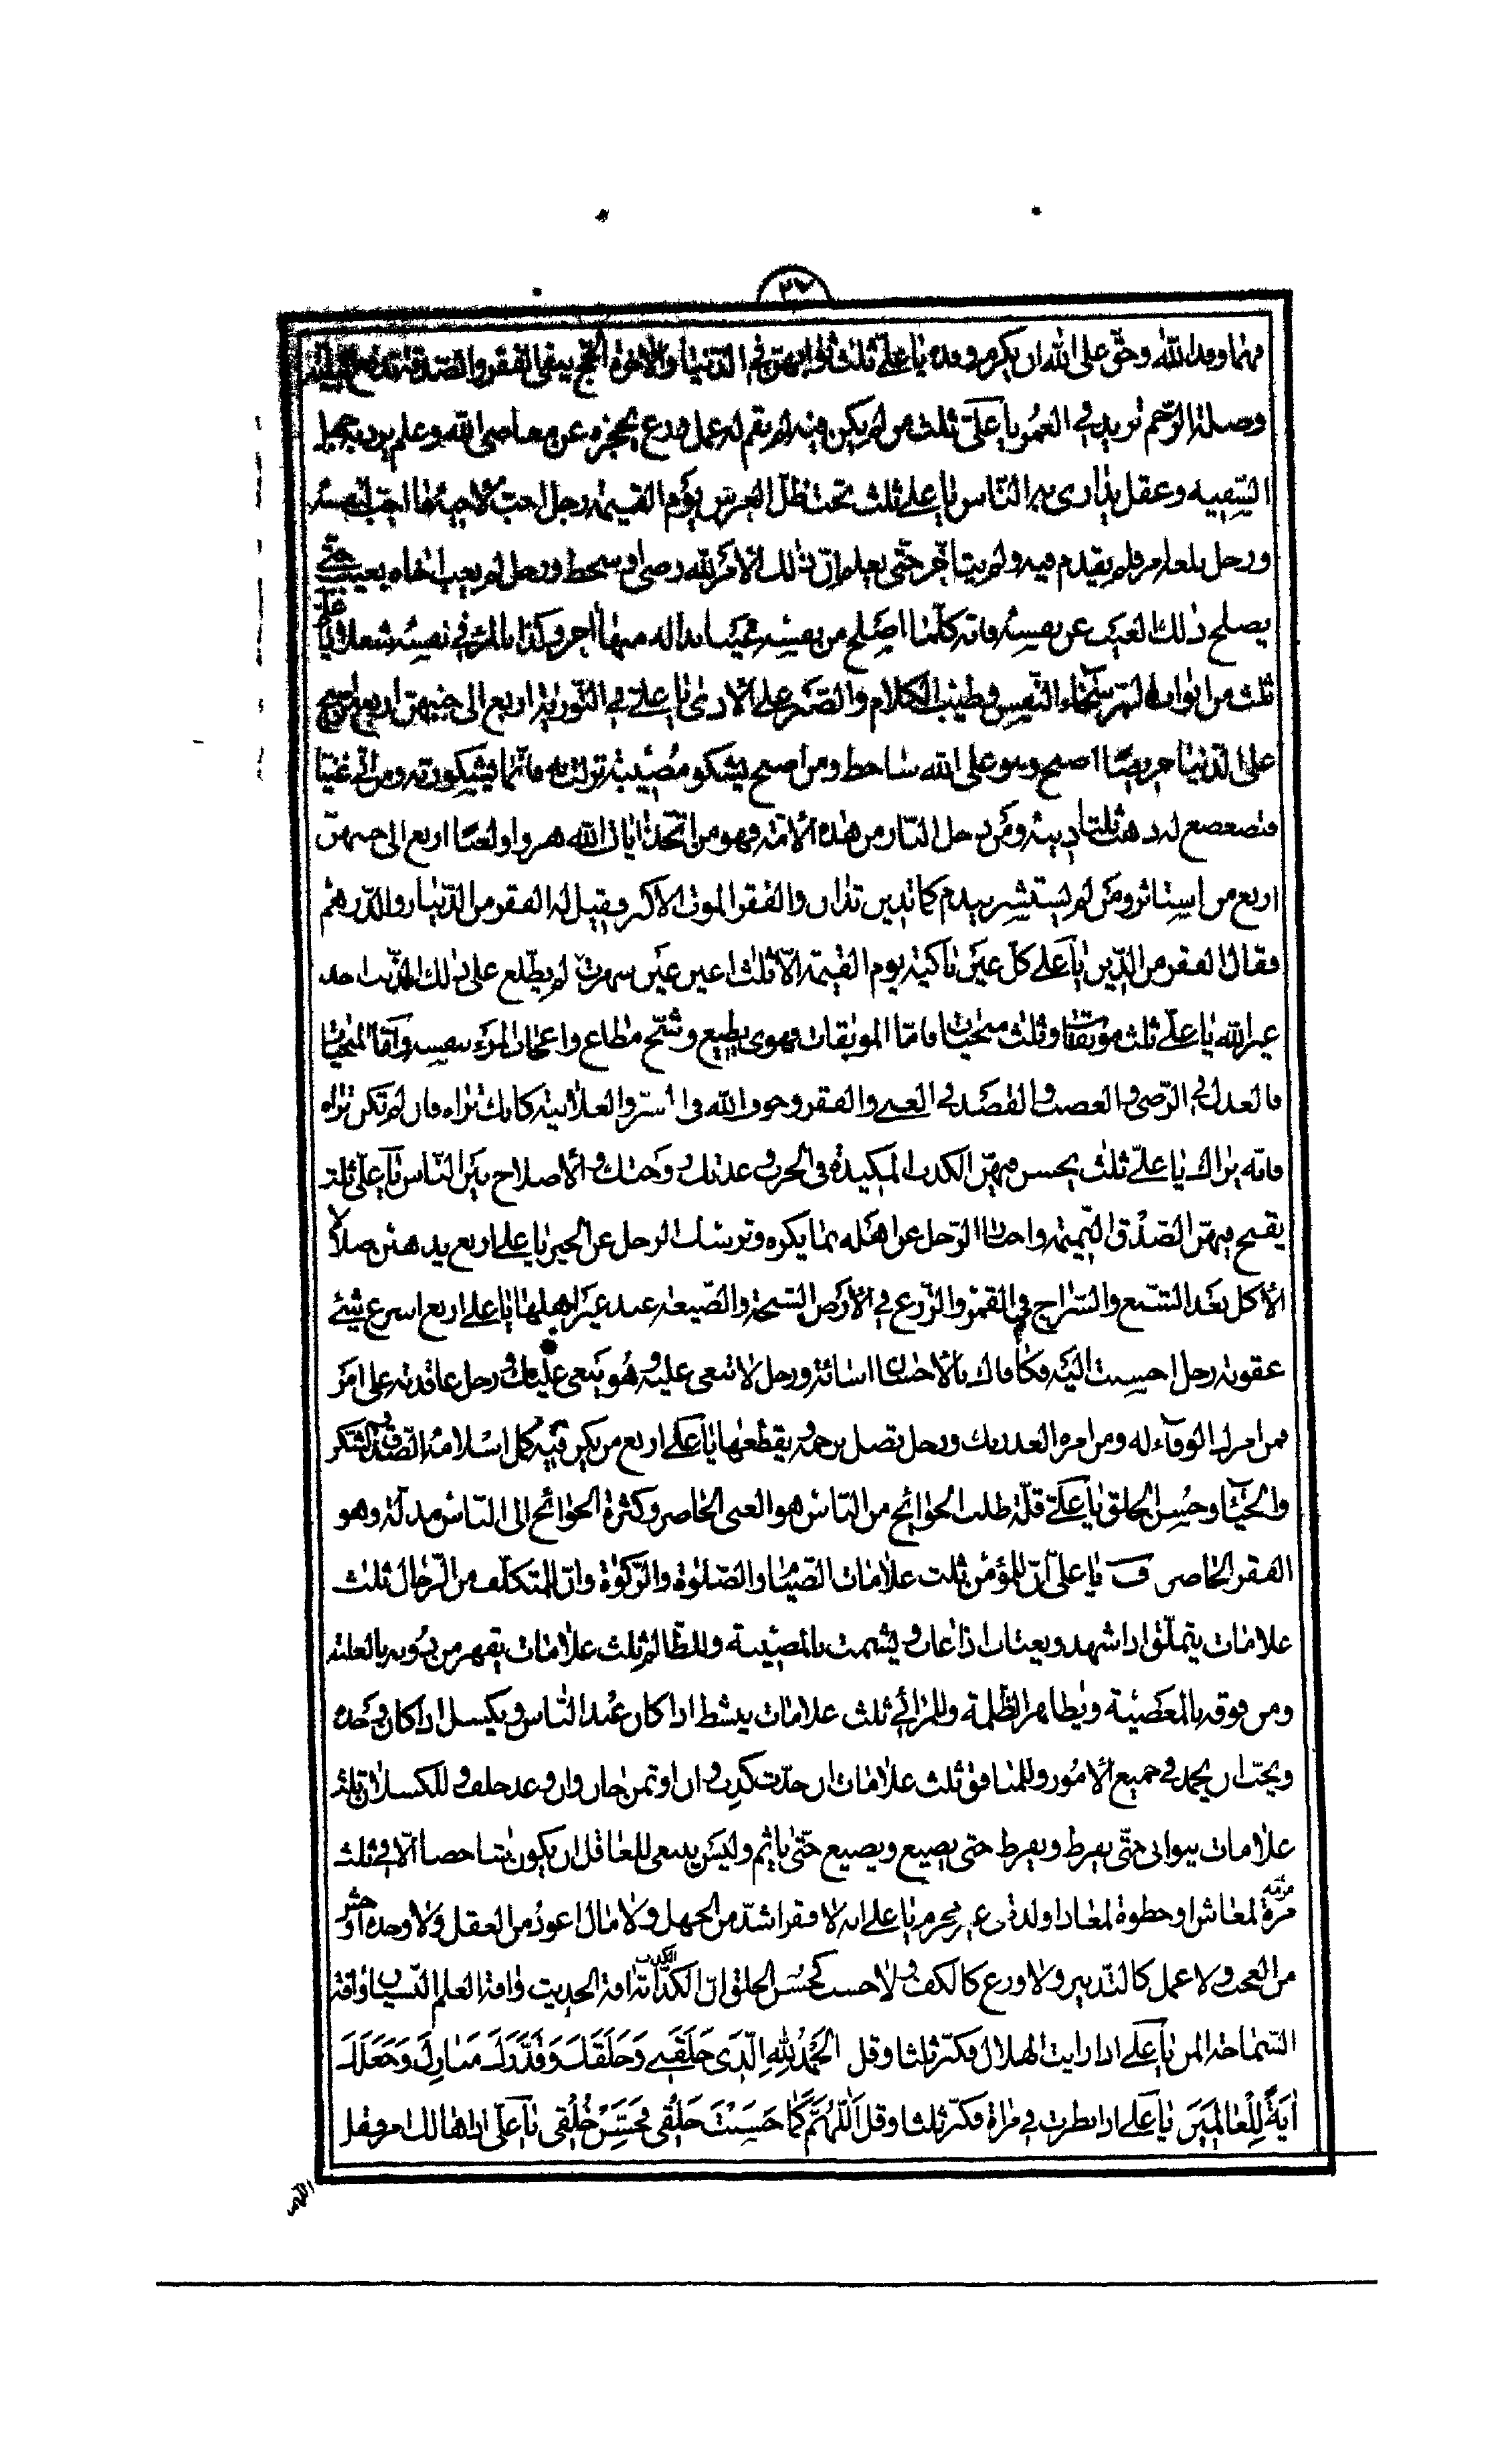 ٢٧
فهما وفد الله وحق على الله ان يكرم وفده يا على ثلث ثوابهن فى الدنيا والاخرة الحج ينفى الفقر والصدقة تدفع البلية
وصلة الرحم تزيد فى العمر يا على ثلث من لم يكن فيه لم يقم له عمل ورع يحجزه عن معاصى الله وعلم يرد به جهل
السفيه وعقل يدارى به الناس يا على ثلث تحت ظل العرش يوم القيمة رجل احب لاخيه ما احب لنفسه
ورجل بلغه امر فلم يقدم فيه ولم يتاخر حتى يعلم ان ذلك الامر لله رضى او سخط ورجل لم يعب اخاه بعيب حتى
يصلح ذلك العيب من نفسه فانه كلما اصلح من نفسه عيبا بدا له منها اخر وكفى بالمرء فى نفسه شغلا يا على
ثلث من ابواب البر سخاء النفس وطيب الكلام والصبر على الاذى يا على فى التورية اربع الى جنبهن اربع من اصبح
على الدنيا حريصا اصبح وهو على الله ساخط ومن اصبح يشكو مصيبة نزلت به فانما يشكو ربه ومن اتى غنيا
فتضعضع له ذهب ثلثا دينه ومن دخل النار من هذه الامة فهو من اتخذ ايات الله هزوا ولعبا اربع الى جنبهن
اربع من استاثر ومن لم يستشر يندم كما تدين تدان والفقر الموت الاكبر فقيل له الفقر من الدينار والدرهم
فقال الفقر من الدين يا على كل عين باكية يوم القيمة الا ثلث اعين عين سهرت لم يطلع على ذلك الذنب احد
غير الله يا على ثلث موبقات وثلث منجيات فاما الموبقات فهوى يطيع وشح مطاع واعجاب المرء بنفسه واما المنجيات
فالعدل فى الرضى والغضب والقصد فى الغنى والفقر وخوف الله فى السر والعلانية كانك تراه فان لم تكن تراه
فانه يراك يا على ثلث يحسن فيهن الكذب المكيدة فى الحرب وعدتك زوجتك والاصلاح بين الناس يا على ثلثة
يقبح فيهن الصدق النميمة واخبار الرجل عن اهله بما يكره وتريبك الرجل عن الخير يا على اربع يذهبن ضلالا
الاكل بعد الشبع والسراج فى القمر والزرع فى الارض السبخة والصنيعة عند غير اهلها يا على اربع اسرع شيئ
عقوبة رجل احسنت اليه فكافاك بالاحسان اسائة ورجل لا تبغى عليه وهو يبغى عليك ورجل عاقدته على امر
فمن امرك الوفاء له ومن امره الغدر بك ورجل تصل رحمه ويقطعها يا على اربع من يكن فيه كمل اسلامه الصدق والشكر
والحيا وحسن الخلق يا على قلة طلب الحوائج من الناس هو الغنى الحاضر وكثرة الحوائج الى الناس مذلة وهو
الفقر الحاضر ف يا على ان للمؤمن ثلث علامات الصيام والصلوة والزكوة وان للمتكلف من الرجال ثلث
علامات يتملق اذا شهد ويغتاب اذا غاب ويشمت بالمصيبة وللظالم ثلث علامات يقهر من دونه بالغلبة
ومن فوقه بالمعصية ويظاهر الظلمة وللمرائى ثلث علامات ينشط اذا كان عند الناس ويكسل اذا كان وحده
ويحب ان يحمد فى جميع الامور وللمنافق ثلث علامات ان حدث كذب وان اوتمن خان وان وعد خلف وللكسلان ثلث
علامات يتوانى حتى يفرط ويفرط حتى يضيع ويضيع حتى ياثم وليس ينبغى للعاقل ان يكون شاخصا الا فى ثلث
مرمة لمعاش او خطوة لمعاد او لذة فى غير محرم يا على انه لا فقر اشد من الجهل ولا مال اعود من العقل ولا وحدة اوحش
من العجب ولا عمل كالتدبير ولا ورع كالكف ولا حسب كحسن الخلق ان الكذب افة الحديث وافة العلم النسيان وافة
السماحة المن يا على اذا رايت الهلال فكبر ثلثا وقل الحمد لله الذى خلقنى وخلقك وقدرك منازل وجعلك
اية للعالمين يا على اذا نظرت فى مراة فكبر ثلثا وقل اللهم كما حسنت خلقى فحسن خلقى يا على اذا هالك امر فقل
اللهم